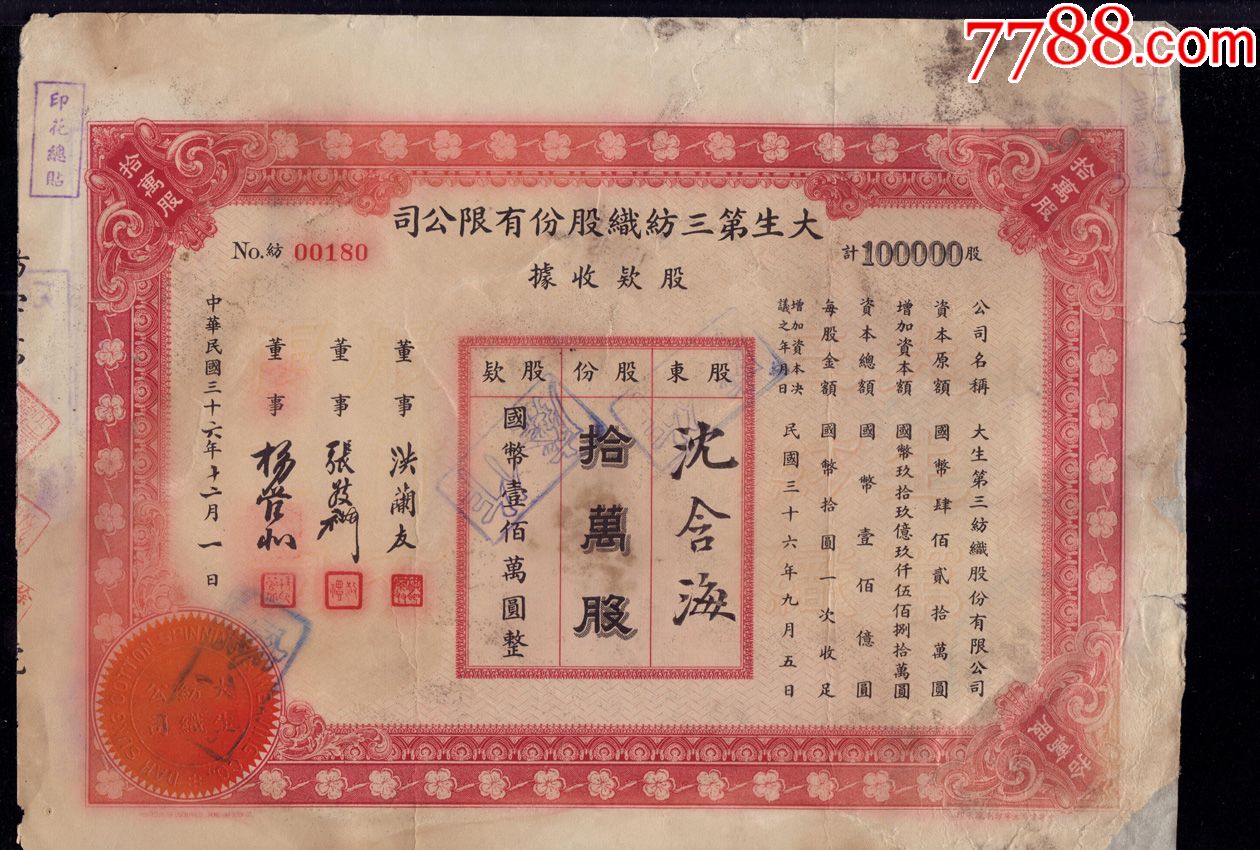 7788.com
印花總貼
拾萬股
拾萬股
大生第三紡織股份有限公司
股款收據
No.紡 00180
計100000股
公司名稱 大生第三紡織股份有限公司
資本原額 國幣肆佰貳拾萬圓
增加資本額 國幣玖拾玖億玖仟伍佰捌拾萬圓
資本總額 國幣壹佰億圓
每股金額 國幣拾圓一次收足
增加資本決議之年月日 民國三十六年九月五日
股東 沈含海
股份 拾萬股
股款 國幣壹佰萬圓整
董事 洪蘭友
董事 張敬禮
董事
中華民國三十六年十二月一日
拾萬股